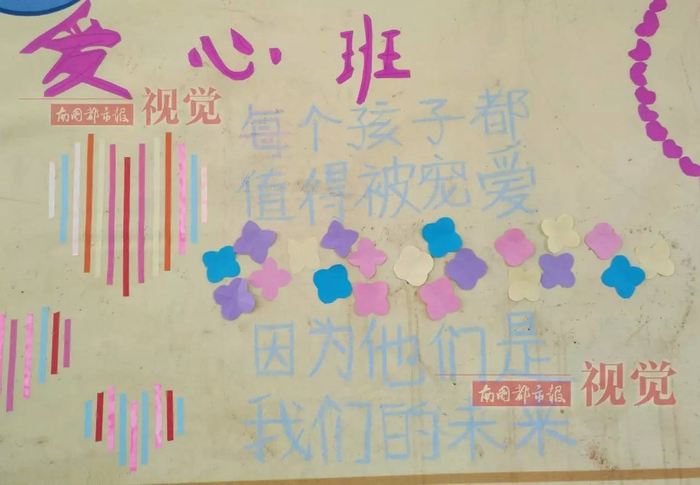 爱心班
南国都市报 视觉
每个孩子都
值得被宠爱
因为他们是
南国都市报 视觉
我们的未来